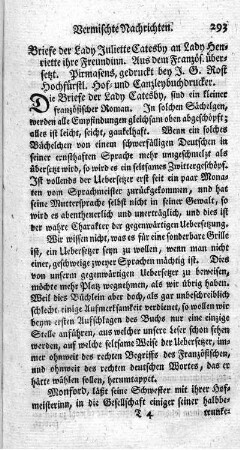 Vermischte Nachrichten. 293
Briefe der Lady Juliette Catesby an Lady Hen-
riette ihre Freundinn. Aus dem Französ. über-
setzt. Pirmasens, gedruckt bey J. G. Kost
Hochfürstl. Hof- und Canzleybuchdrucker.
Die Briefe der Lady Catesby, sind ein kleiner
französischer Roman. In solchen Sächelgen,
werden alle Empfindungen gleichsam oben abgeschöpft;
alles ist leicht, seicht, gaukelhaft. Wenn ein solches
Büchelchen von einem schwerfälligen Deutschen in
seiner ernsthaften Sprache mehr umgeschmolzt als
übersetzt wird, so wird es ein seltsames Zwittergeschöpf.
Ist vollends der Uebersetzer erst seit ein paar Mona-
ten vom Sprachmeister zurückgekommen, und hat
seine Muttersprache selbst nicht in seiner Gewalt, so
wird es abentheuerlich und unerträglich, und dis ist
der wahre Charakter der gegenwärtigen Uebersetzung.
Wir wissen nicht, was es für eine sonderbare Grille
ist, ein Uebersetzer seyn zu wollen, wenn man nicht
einer, geschweige zweyer Sprachen mächtig ist. Dies
von unserm gegenwärtigen Uebersetzer zu beweisen,
möchte mehr Platz wegnehmen, als wir übrig haben.
Weil dies Büchlein aber doch, als gar unbeschreiblich
schlecht, einige Aufmerksamkeit verdienet, so wollen wir
beym ersten Aufschlagen des Buchs nur eine einzige
Stelle anführen, aus welcher unsere Leser schon sehen
werden, auf welche seltsame Weise der Uebersetzer, im-
mer ohnweit des rechten Begriffs des Französischen,
und ohnweit des rechten deutschen Wortes, das er
hätte wählen sollen, herumtappet.
Monford, läßt seine Schwester mit ihrer Hof-
meisterinn, in die Gesellschaft einiger seiner halbbe-
T 4 trunke-